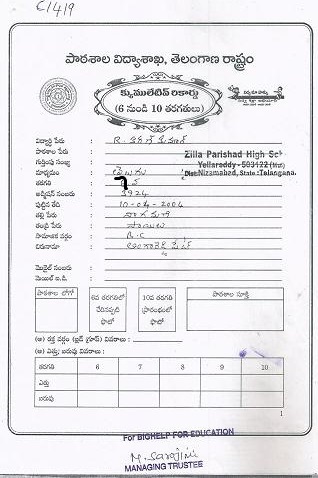 C/419
పాఠశాల విద్యాశాఖ, తెలంగాణ రాష్ట్రం
క్యుములేటివ్ రికార్డు
(6 నుండి 10 తరగతులు)
విద్యార్థి పేరు : R.
పాఠశాల పేరు : Zilla Parishad High Sch
గుర్తింపు సంఖ్య : Yellareddy-503122 (Mdl)
మాధ్యమం : తెలుగు Dist:Nizamabad, State:Telangana.
తరగతి : 7
అడ్మిషన్ నంబరు : 3924
పుట్టిన తేది : 10-04-2004
తల్లి పేరు : నాగమణి
తండ్రి పేరు : సాయిలు
సామాజిక వర్గం : B.C
చిరునామా :
మొబైల్ నంబరు :
మెయిల్ ఐ.డి. :
పాఠశాల లోగో
6వ తరగతిలో చేరినప్పటి ఫొటో
10వ తరగతి ప్రారంభంలో ఫొటో
పాఠశాల సూక్తి
(అ) రక్త వర్గం (బ్లడ్ గ్రూప్) వివరాలు :
(ఆ) ఎత్తు, బరువు వివరాలు :
తరగతి 6 7 8 9 10
ఎత్తు
బరువు
1
For BIGHELP FOR EDUCATION
M. Sarojini
MANAGING TRUSTEE